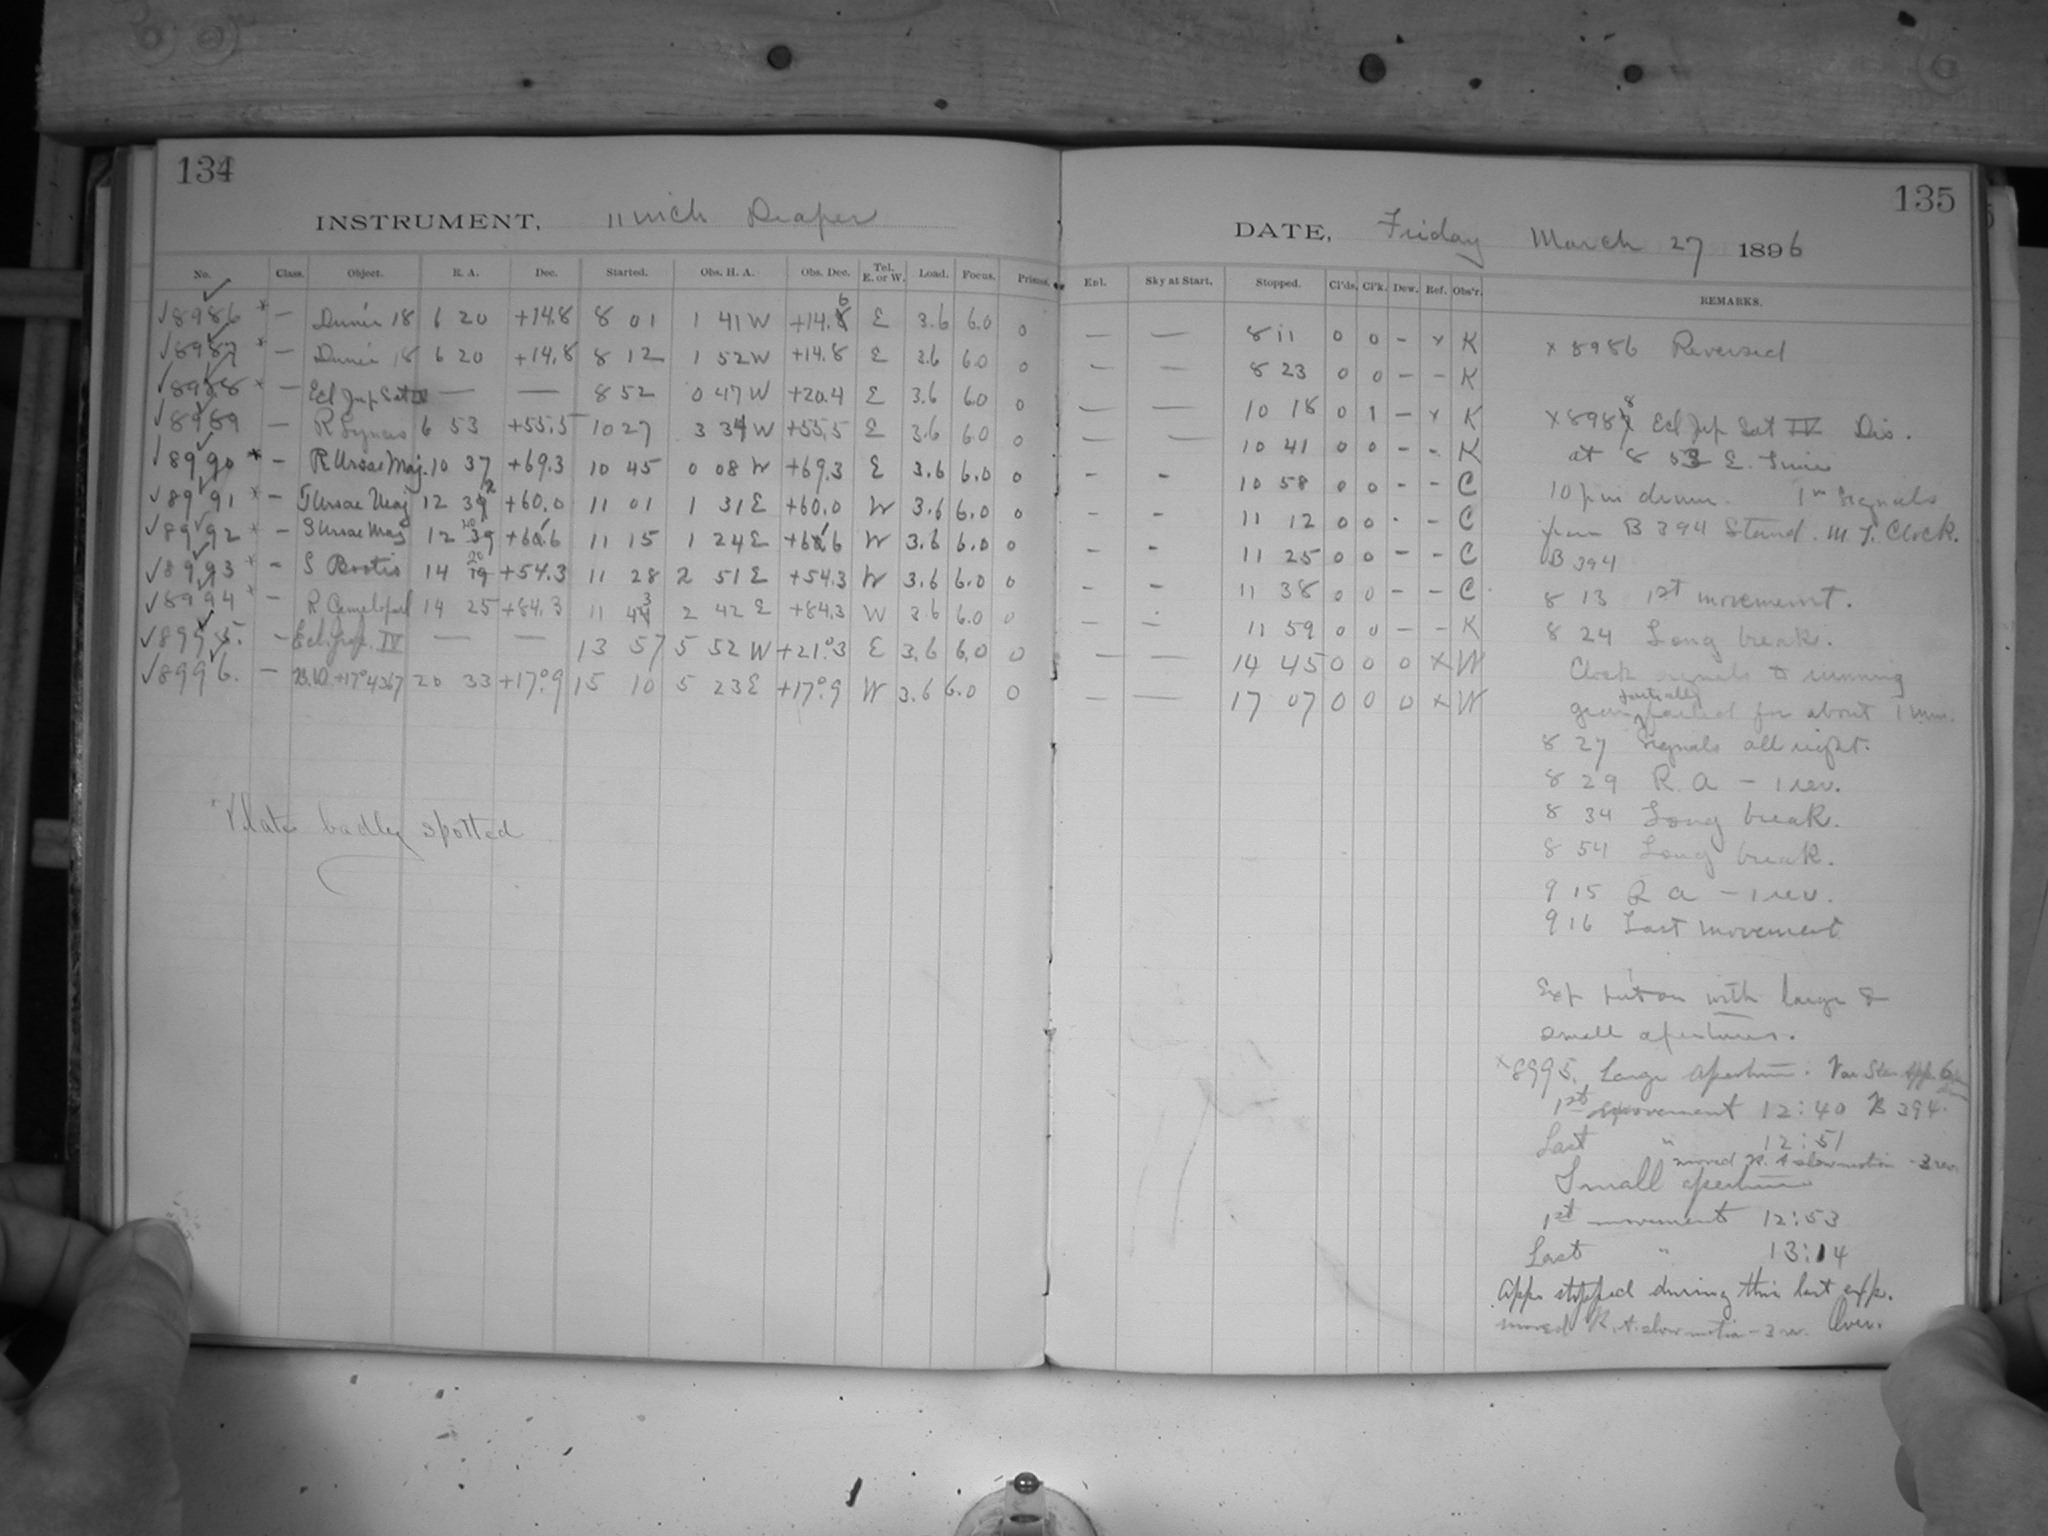 134
INSTRUMENT, 11 inch Draper
No. Class. Object. R. A. Dec. Started. Obs. H. A. Obs. Dec. Tel. E. or W. Load. Focus. Prisms.
√8986 * — Dunér 18 6 20 +14.8 8 01 1 41 W +14.6 E 3.6 6.0 0
√8987 * — Dunér 18 6 20 +14.8 8 12 1 52 W +14.8 E 3.6 6.0 0
√8988 * — Ecl Jup Sat IV — — 8 52 0 47 W +20.4 E 3.6 6.0 0
√8989 — R Lyncis 6 53 +55.5 10 27 3 34 W +55.5 E 3.6 6.0 0
√8990 * — R Ursae Maj. 10 37 +69.3 10 45 0 08 W +69.3 E 3.6 6.0 0
√8991 * — T Ursae Maj 12 32 +60.0 11 01 1 31 E +60.0 W 3.6 6.0 0
√8992 * — S Ursae Maj 12 40 +61.6 11 15 1 24 E +61.6 W 3.6 6.0 0
√8993 * — S Bootis 14 20 +54.3 11 28 2 51 E +54.3 W 3.6 6.0 0
√8994 * — R Camelopard 14 25 +84.3 11 43 2 42 E +84.3 W 3.6 6.0 0
√8995. — Ecl. Jup. IV — — 13 57 5 52 W +21°.3 E 3.6 6.0 0
√8996. — B.D. +17°4367 20 33 +17°.9 15 10 5 23 E +17°.9 W 3.6 6.0 0
* Plates badly spotted
135
DATE, Friday March 27 1896
Enl. Sky at Start. Stopped. Cl'ds. Cl'k. Dew. Ref. Obs'r. REMARKS.
— — 8 11 0 0 - x K
— — 8 23 0 0 - - K
— — 10 18 0 1 - x K
— — 10 41 0 0 - - K
- - 10 58 0 0 - - C
- - 11 12 0 0 - - C
- - 11 25 0 0 - - C
- - 11 38 0 0 - - C
- - 11 59 0 0 - - K
— — 14 45 0 0 0 x W
— — 17 07 0 0 0 x W
x 8986 Reversed
x 8988 Ecl Jup Sat IV Dis.
at 8 53 E. Time
10 pm drum. 1m signals
from B 394 Stand. M. T. Clock.
B 394
8 13 1st movement.
8 24 Long break.
Clock signals to running
gear partially failed for about 1 min.
8 27 Signals all right.
8 29 R. A — 1 rev.
8 34 Long break.
8 54 Long break.
9 15 R A — 1 rev.
9 16 Last movement
Exp put on with large &
small apertures.
x 8995. Large aperture. Var Star App. 6
1st movement 12:40 B 394.
Last " 12:51
moved R. A slow motion - 3 rev.
Small aperture
1st movement 12:53
Last " 13:14
App. stopped during this last exp.
moved R. A. slow motion - 3 rev. Over.